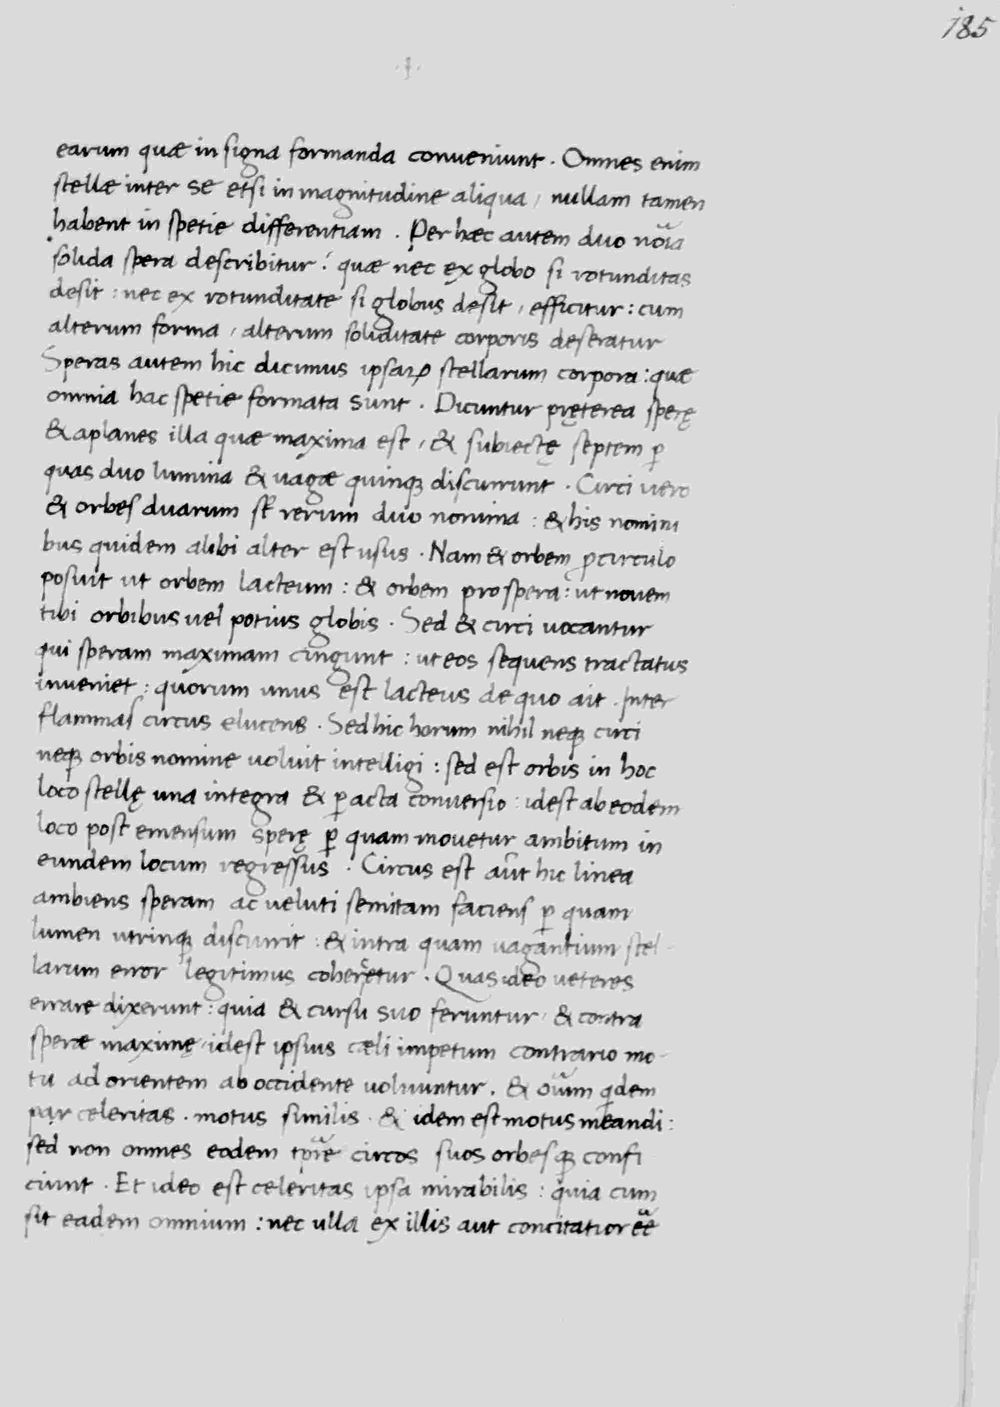 185
earum quæ in signa formanda conveniunt . Omnes enim
stellæ inter se etsi in magnitudine aliqua , nullam tamen
habent in spetie differentiam . Per hæc autem duo noı̃a
solida spera describitur : quæ nec ex globo si rotunditas
desit : nec ex rotunditate si globus desit , efficitur : cum
alterum forma , alterum soliditate corporis deseratur
Speras autem hic dicimus ipsaꝝ stellarum corpora : quæ
omnia hac spetie formata sunt . Dicuntur pręterea sperę
& aplanes illa quæ maxima est , & subiectę septem ꝑ
quas duo lumina & uagæ quinqꝫ discurrunt . Circi uero
& orbes duarum st̃ rerum duo nomina : & his nomini
bus quidem alibi alter est usus . Nam & orbem ꝓ circulo
posuit ut orbem lacteum : & orbem pro spera : ut novem
tibi orbibus uel potius globis . Sed & circi vocantur
qui speram maximam cingunt : ut eos sequens tractatus
inveniet : quorum unus est lacteus de quo ait . Inter
flammas circus elucens . Sed hic horum nihil neqꝫ circi
neqꝫ orbis nomine voluit intelligi : sed est orbis in hoc
loco stellę una integra & ꝑacta conversio : idest ab eodem
loco post emensum sperę ꝑ quam movetur ambitum in
eundem locum regressus . Circus est aũt hic linea
ambiens speram ac veluti semitam faciens ꝑ quam
lumen utrinqꝫ discurrit : & intra quam vagantium stel-
larum error legitimus coheręetur . Quas ideo veteres
errare dixerunt : quia & cursu suo feruntur , & contra
speræ maximę , idest ipsius cæli impetum contrario mo-
tu ad orientem ab occidente volvuntur . & oı̃um qdem
par celeritas . motus similis . & idem est motus meandi :
sed non omnes eodem tp̃re circos suos orbesqꝫ confi
ciunt . Et ideo est celeritas ipsa mirabilis : quia cum
sit eadem omnium : nec ulla ex illis aut concitatior eẽ